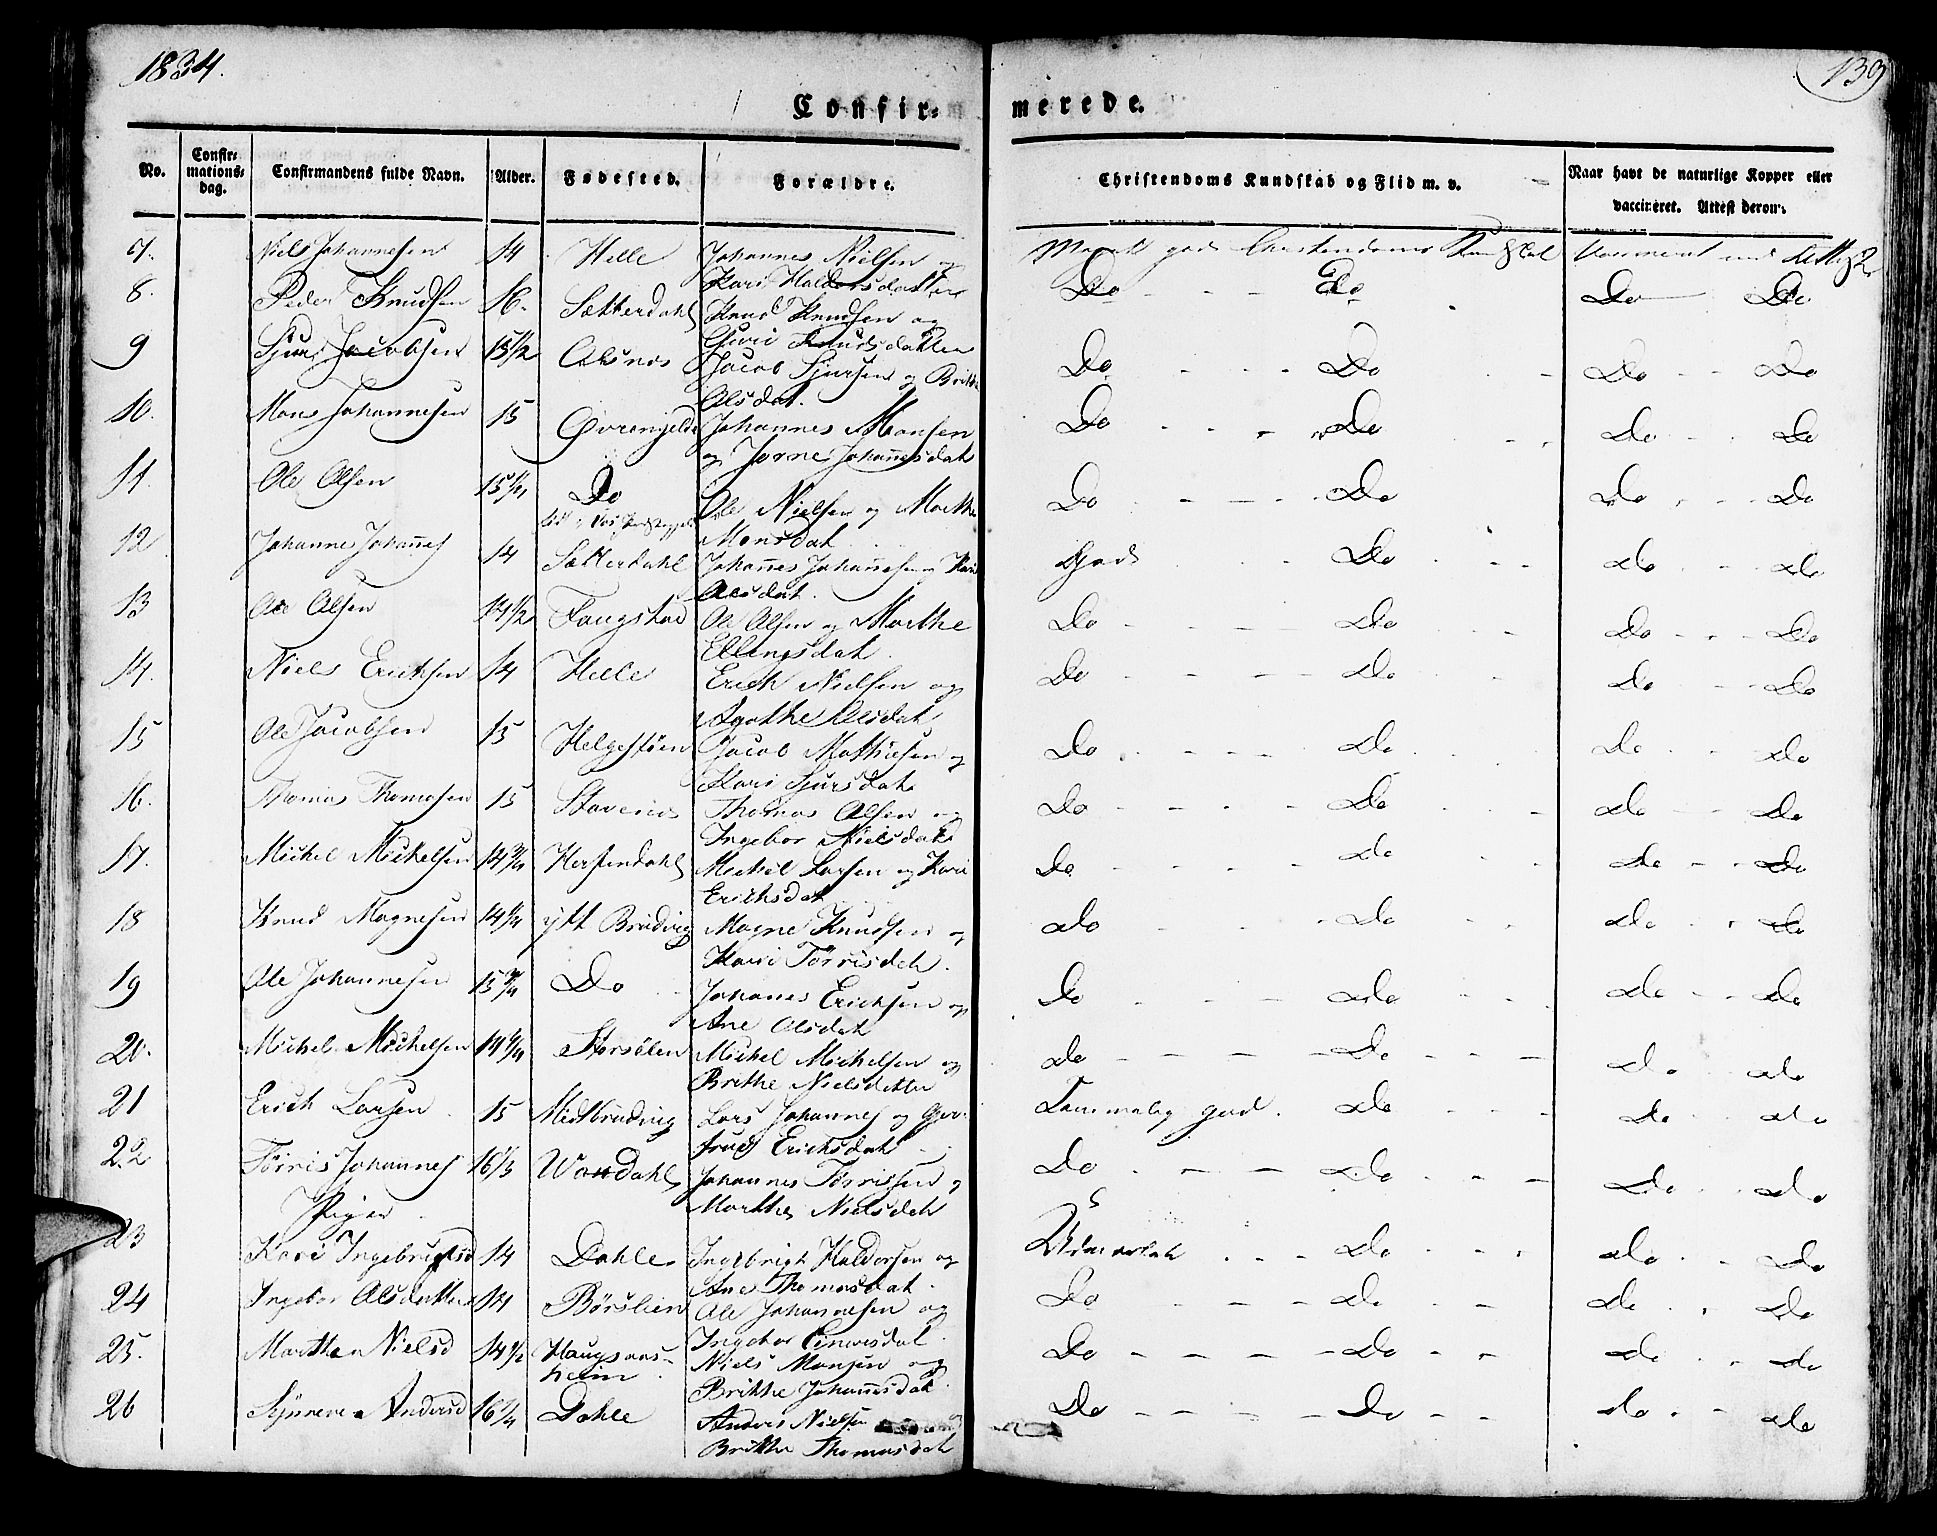 1834.
139
Confir-
merede.
No.
Confir-
mations-
dag.
Confirmandens fulde Navn.
Alder.
Fødested.
Forældre.
Christendoms Kundskab og Flid m. v.
Naar havt de naturlige Kopper eller
vaccineret. Attest derom.
7. Niels Johannesen 14 Helle Johannes Nielsen og
Kari Haldorsdatter
Meget god Christendoms Kundskab
8. Peder Knudsen 16. Sætterdahl Knud Knudsen og
Guri Knudsdatter
Do Do Do Do
9 Sjur Jacobsen 15 1/2 Alsnæs Jacob Sjursen og Brithe
Olsdat.
Do Do Do Do
10. Mons Johannesen 15 Øvrenjelde Johannes Monsen
og Jorne Johannesdat
Do Do Do Do
11. Ole Olsen 15 1/4 Do
Ole Nielsen og Marthe
Monsdat
Do Do Do Do
12 Johannes Johannes 14 Sætterdahl Johannes Johannesen og Kari
Olsdat.
God Do Do Do
13 Ole Olsen 14 1/2 Faugstad Ole Olsen og Marthe
Ellingsdat
Do Do Do Do
14. Niels Erichsen 14 Helle Erich Nielsen og
Agathe Olsdat
Do Do Do Do
15 Ole Jacobsen 15 Helgestøen Jacob Mathiesen og
Kari Sjursdat
Do Do Do Do
16. Thomas Thomasen 15 Stavenes Thomas Olsen og
Ingebor Nielsdat
Do Do Do Do
17. Michel Michelsen 14 3/4 Herfindahl Michel Larsen og Kari
Erichsdat
Do Do Do Do
18 Knud Magnesen 14 1/4 ytt Bruvig Magne Knudsen og
Kari Tørrisdat.
Do Do Do Do
19 Ole Johannesen 15 3/4 Do Johannes Erichsen og
Ane Olsdat
Do Do Do Do
20. Michel Michelsen 14 1/4 Storsølen Michel Michelsen og
Brithe Nielsdatter
Do Do Do Do
21 Erich Larsen 15 Midtbruvig Lars Johannes og Ger-
trud Erichsdat
Temmelig god. Do Do Do
22 Tørris Johannes 16 1/3 Wondahl Johannes Tørrissen og
Marthe Nielsdat
Do Do Do Do
Piger
23 Kari Ingebrigtsd 14 Dahle Ingebrigt Haldorsen og
Ane Thomasdat.
Udmærket Do Do Do
24 Ingebor Olsdatter 14 Børslien Ole Johannesen og
Ingebor Einarsdat
Do Do Do Do
25. Marthe Nielsd 14 1/2 Haugsaas-
heim
Niels Monsen og
Brithe Johannesdat
Do Do Do Do
26 Synneve Andersd 16 1/4 Dahle Anders Nielsen
og
Brithe Thomasdat
Do Do Do Do